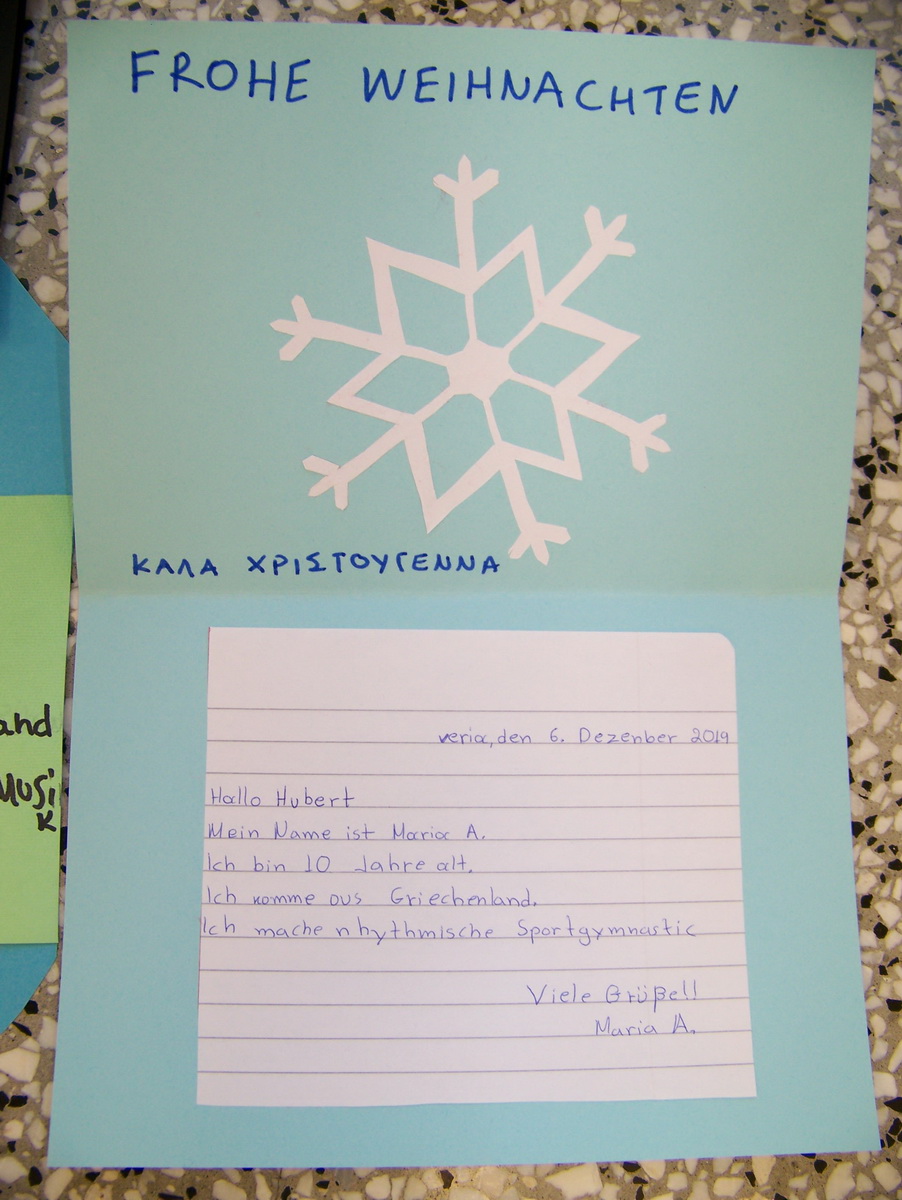 FROHE WEIHNACHTEN
ΚΑΛΑ ΧΡΙΣΤΟΥΓΕΝΝΑ
veria, den 6. Dezenber 2019
Hallo Hubert
Mein Name ist Maria A.
Ich bin 10 Jahre alt.
Ich komme aus Griechenland.
Ich mache rhythmische Sportgymnastic
Viele Grüße!!
Maria A.
and
Musi
k